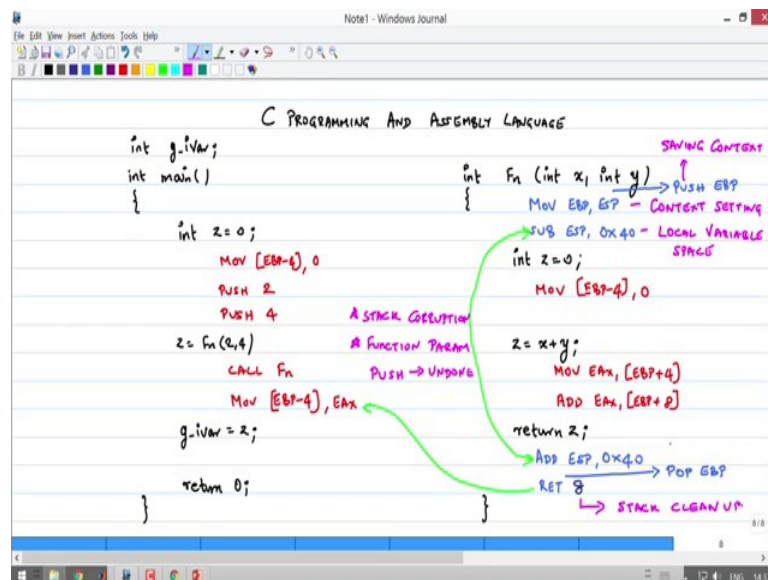 Note1 - Windows Journal
File Edit View Insert Actions Tools Help
C PROGRAMMING AND ASSEMBLY LANGUAGE
int g_ivar;
int main()
{
int z=0;
MOV [EBP-4], 0
PUSH 2
PUSH 4
z = Fn(2,4)
CALL Fn
MOV [EBP-4], EAX
g_ivar = z;
return 0;
}
* STACK CORRUPTION
* FUNCTION PARAM
PUSH → UNDONE
SAVING CONTEXT
int Fn (int x, int y) → PUSH EBP
{
MOV EBP, ESP - CONTEXT SETTING
SUB ESP, 0X40 - LOCAL VARIABLE
SPACE
int z=0;
MOV [EBP-4], 0
z = x+y;
MOV EAX, [EBP+4]
ADD EAX, [EBP+8]
return z;
ADD ESP, 0X40
→ POP EBP
RET 8
→ STACK CLEAN UP
}
8/8
8
ENG